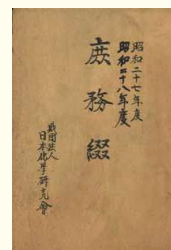 昭和二十七年度
昭和四十八年度
庶務綴
財団法人
日本佛学研究會